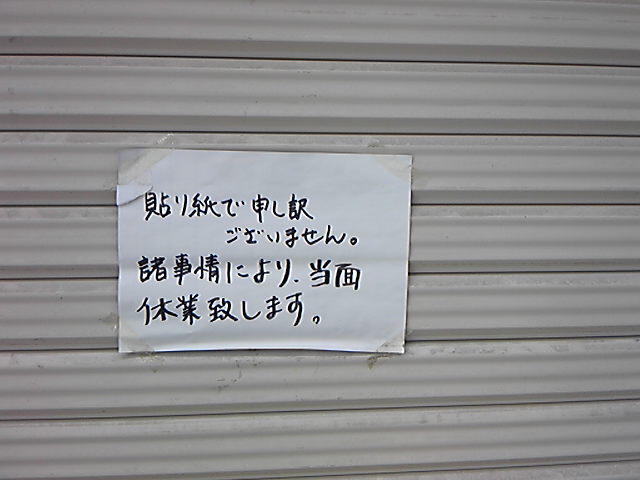 貼り紙で申し訳
ございません。
諸事情により、当面
休業致します。